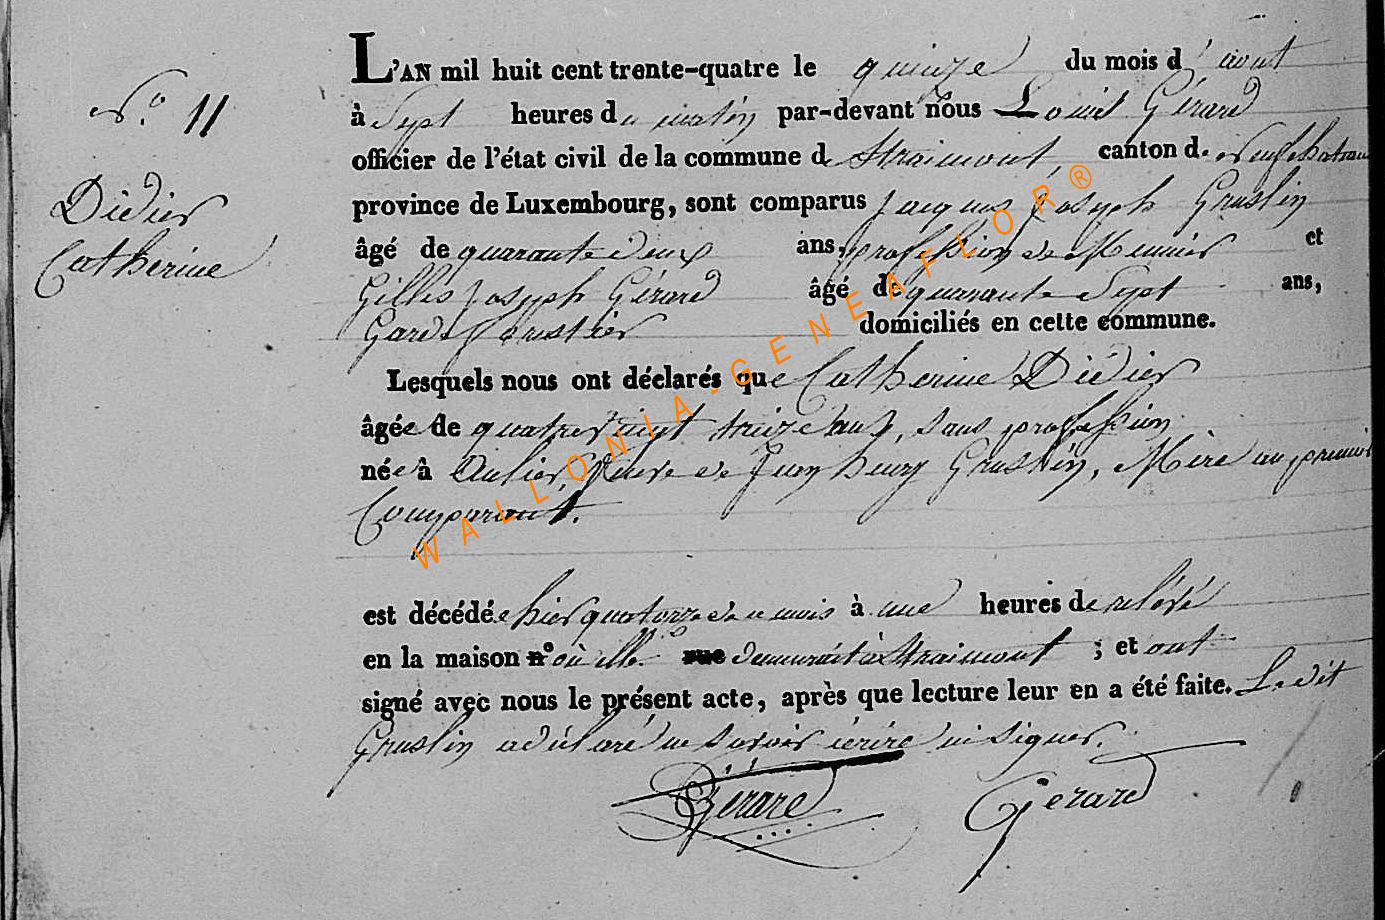 L'AN mil huit cent trente-quatre le quinze du mois d'aout
N.º 11
à Sept heures du matin par-devant nous Louis Gérard
officier de l'état civil de la commune de Straimont, canton de Neufchateau
Didier
Catherine
province de Luxembourg, sont comparus Jacques Joseph Gruslin
âgé de quarante deux ans, profession de Meunier et
Gilles Joseph Gérard âgé de quarante Sept ans,
Garde forestier domiciliés en cette commune.
Lesquels nous ont déclarés que Catherine Didier
âgée de quatre vingt treize ans, sans profession
née à Anlier, Veuve de Jean henry Gruslin, Mère au premier
Comparant.
est décédée hier quatorze de ce mois à une heures de relevé
en la maison nº où elle rue demeurait à Straimont ; et ont
signé avec nous le présent acte, après que lecture leur en a été faite. Le dit
Gruslin a déclaré ne savoir écrire ni signer.
Gérard Gerard
WALLONIA-GENEAFLOR®